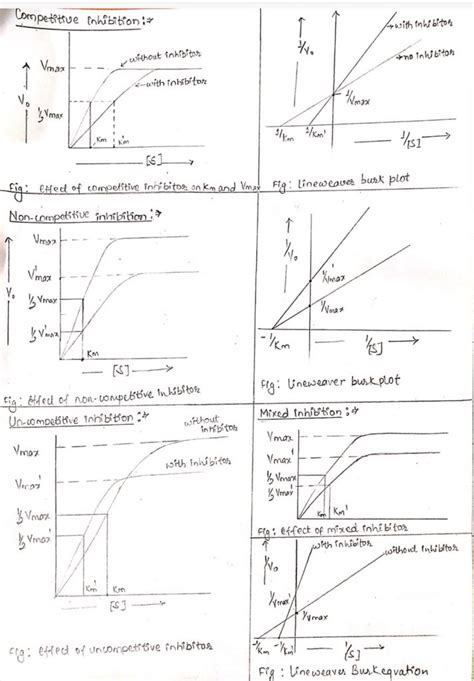 Competitive inhibition:→
Vmax
without inhibitor
with inhibitor
V₀
½Vmax
Km
K'm
[S]
Fig: effect of competitive inhibitor on Km and Vmax
1/V₀
with inhibitor
no inhibitor
1/Vmax
1/Km
1/Km'
1/[S]
Fig: Lineweaver burk plot
Non-competitive inhibition:→
Vmax
V'max
V₀
½Vmax
½V'max
Km
[S]
Fig: effect of non-competitive inhibitor
1/V₀
1/V'max
1/Vmax
-1/Km
1/[S]
Fig: Lineweaver burk plot
Un-competitive inhibition:→
without
inhibitor
Vmax
with inhibitor
Vmax'
½Vmax
½Vmax'
Km'
Km
[S]
Fig: effect of uncompetitive inhibitor
Mixed inhibition:→
Vmax
Vmax'
½Vmax
½Vmax'
Km
Km'
Fig: effect of mixed inhibitor
1/V₀
with inhibitor
without inhibitor
1/Vmax'
1/Vmax
-1/Km
-1/Km'
1/[S]
Fig: Lineweaver Burk equation